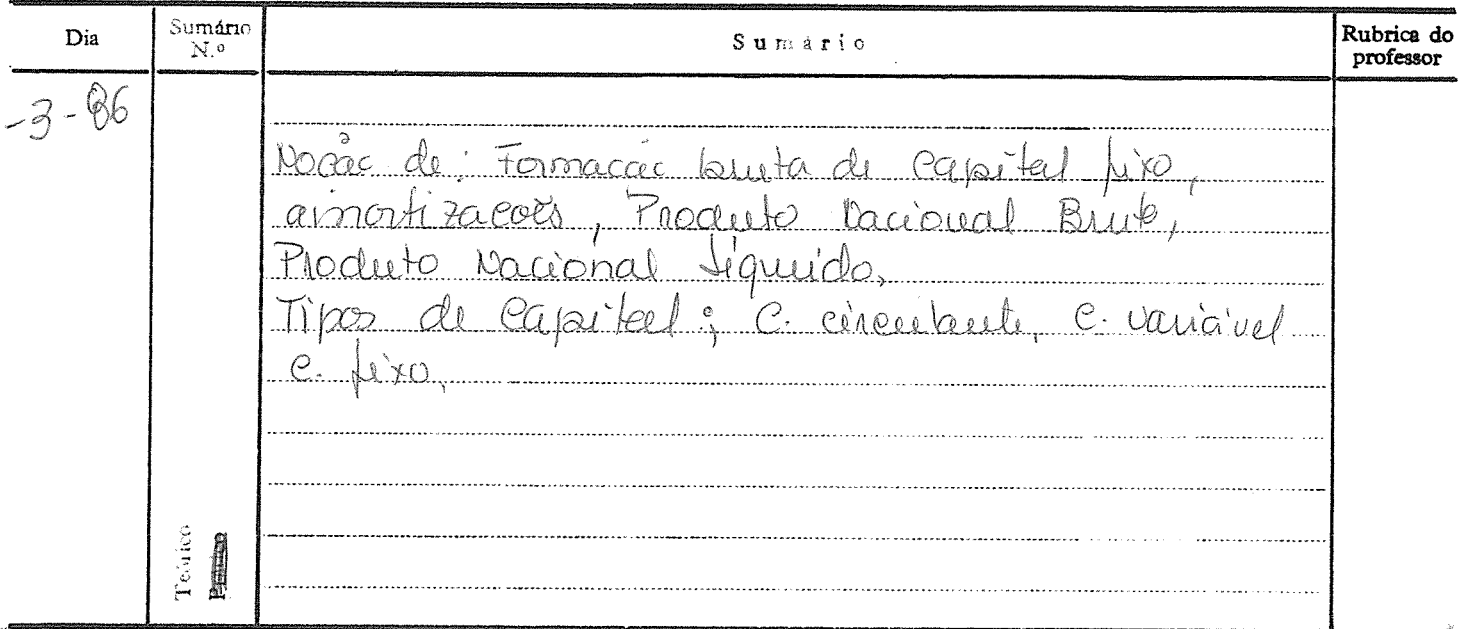 Dia Sumário N.º Sumário Rubrica do professor
-3-86
Noção de: Formação bruta de capital fixo,
amortizações, Produto Nacional Bruto,
Produto Nacional Líquido,
Tipos de capital: C. circulante, C. variável
C. fixo,
Teórico